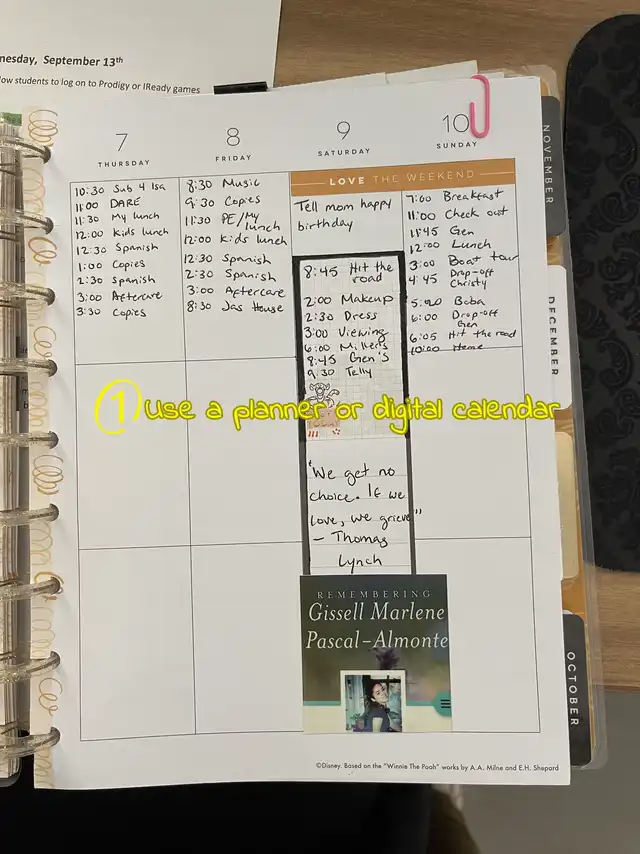 nesday, September 13th
low students to log on to Prodigy or IReady games
7
THURSDAY
8
FRIDAY
9
SATURDAY
10
SUNDAY
10:30 Sub 4 Isa
11:00 DARE
11:30 My lunch
12:00 Kids lunch
12:30 Spanish
1:00 Copies
2:30 Spanish
3:00 Aftercare
3:30 Copies
8:30 Music
9:30 Copies
11:30 PE/My lunch
12:00 Kids lunch
12:30 Spanish
2:30 Spanish
3:00 Aftercare
8:30 Jas House
LOVE THE WEEKEND
Tell mom happy
birthday
8:45 Hit the
road
2:00 Makeup
2:30 Dress
3:00 Viewing
6:00 Miller's
8:45 Gen's
9:30 Telly
"We get no
choice. If we
love, we grieve"
- Thomas
Lynch
REMEMBERING
Gissell Marlene
Pascal-Almonte
7:00 Breakfast
11:00 Check out
11:45 Gen
12:00 Lunch
3:00 Boat tour
4:45 Drop-off
Christy
5:00 Boba
6:00 Drop-off
Gen
6:05 Hit the road
10:00 Home
1 use a planner or digital calendar
NOVEMBER
DECEMBER
OCTOBER
©Disney. Based on the "Winnie The Pooh" works by A.A. Milne and E.H. Shepard